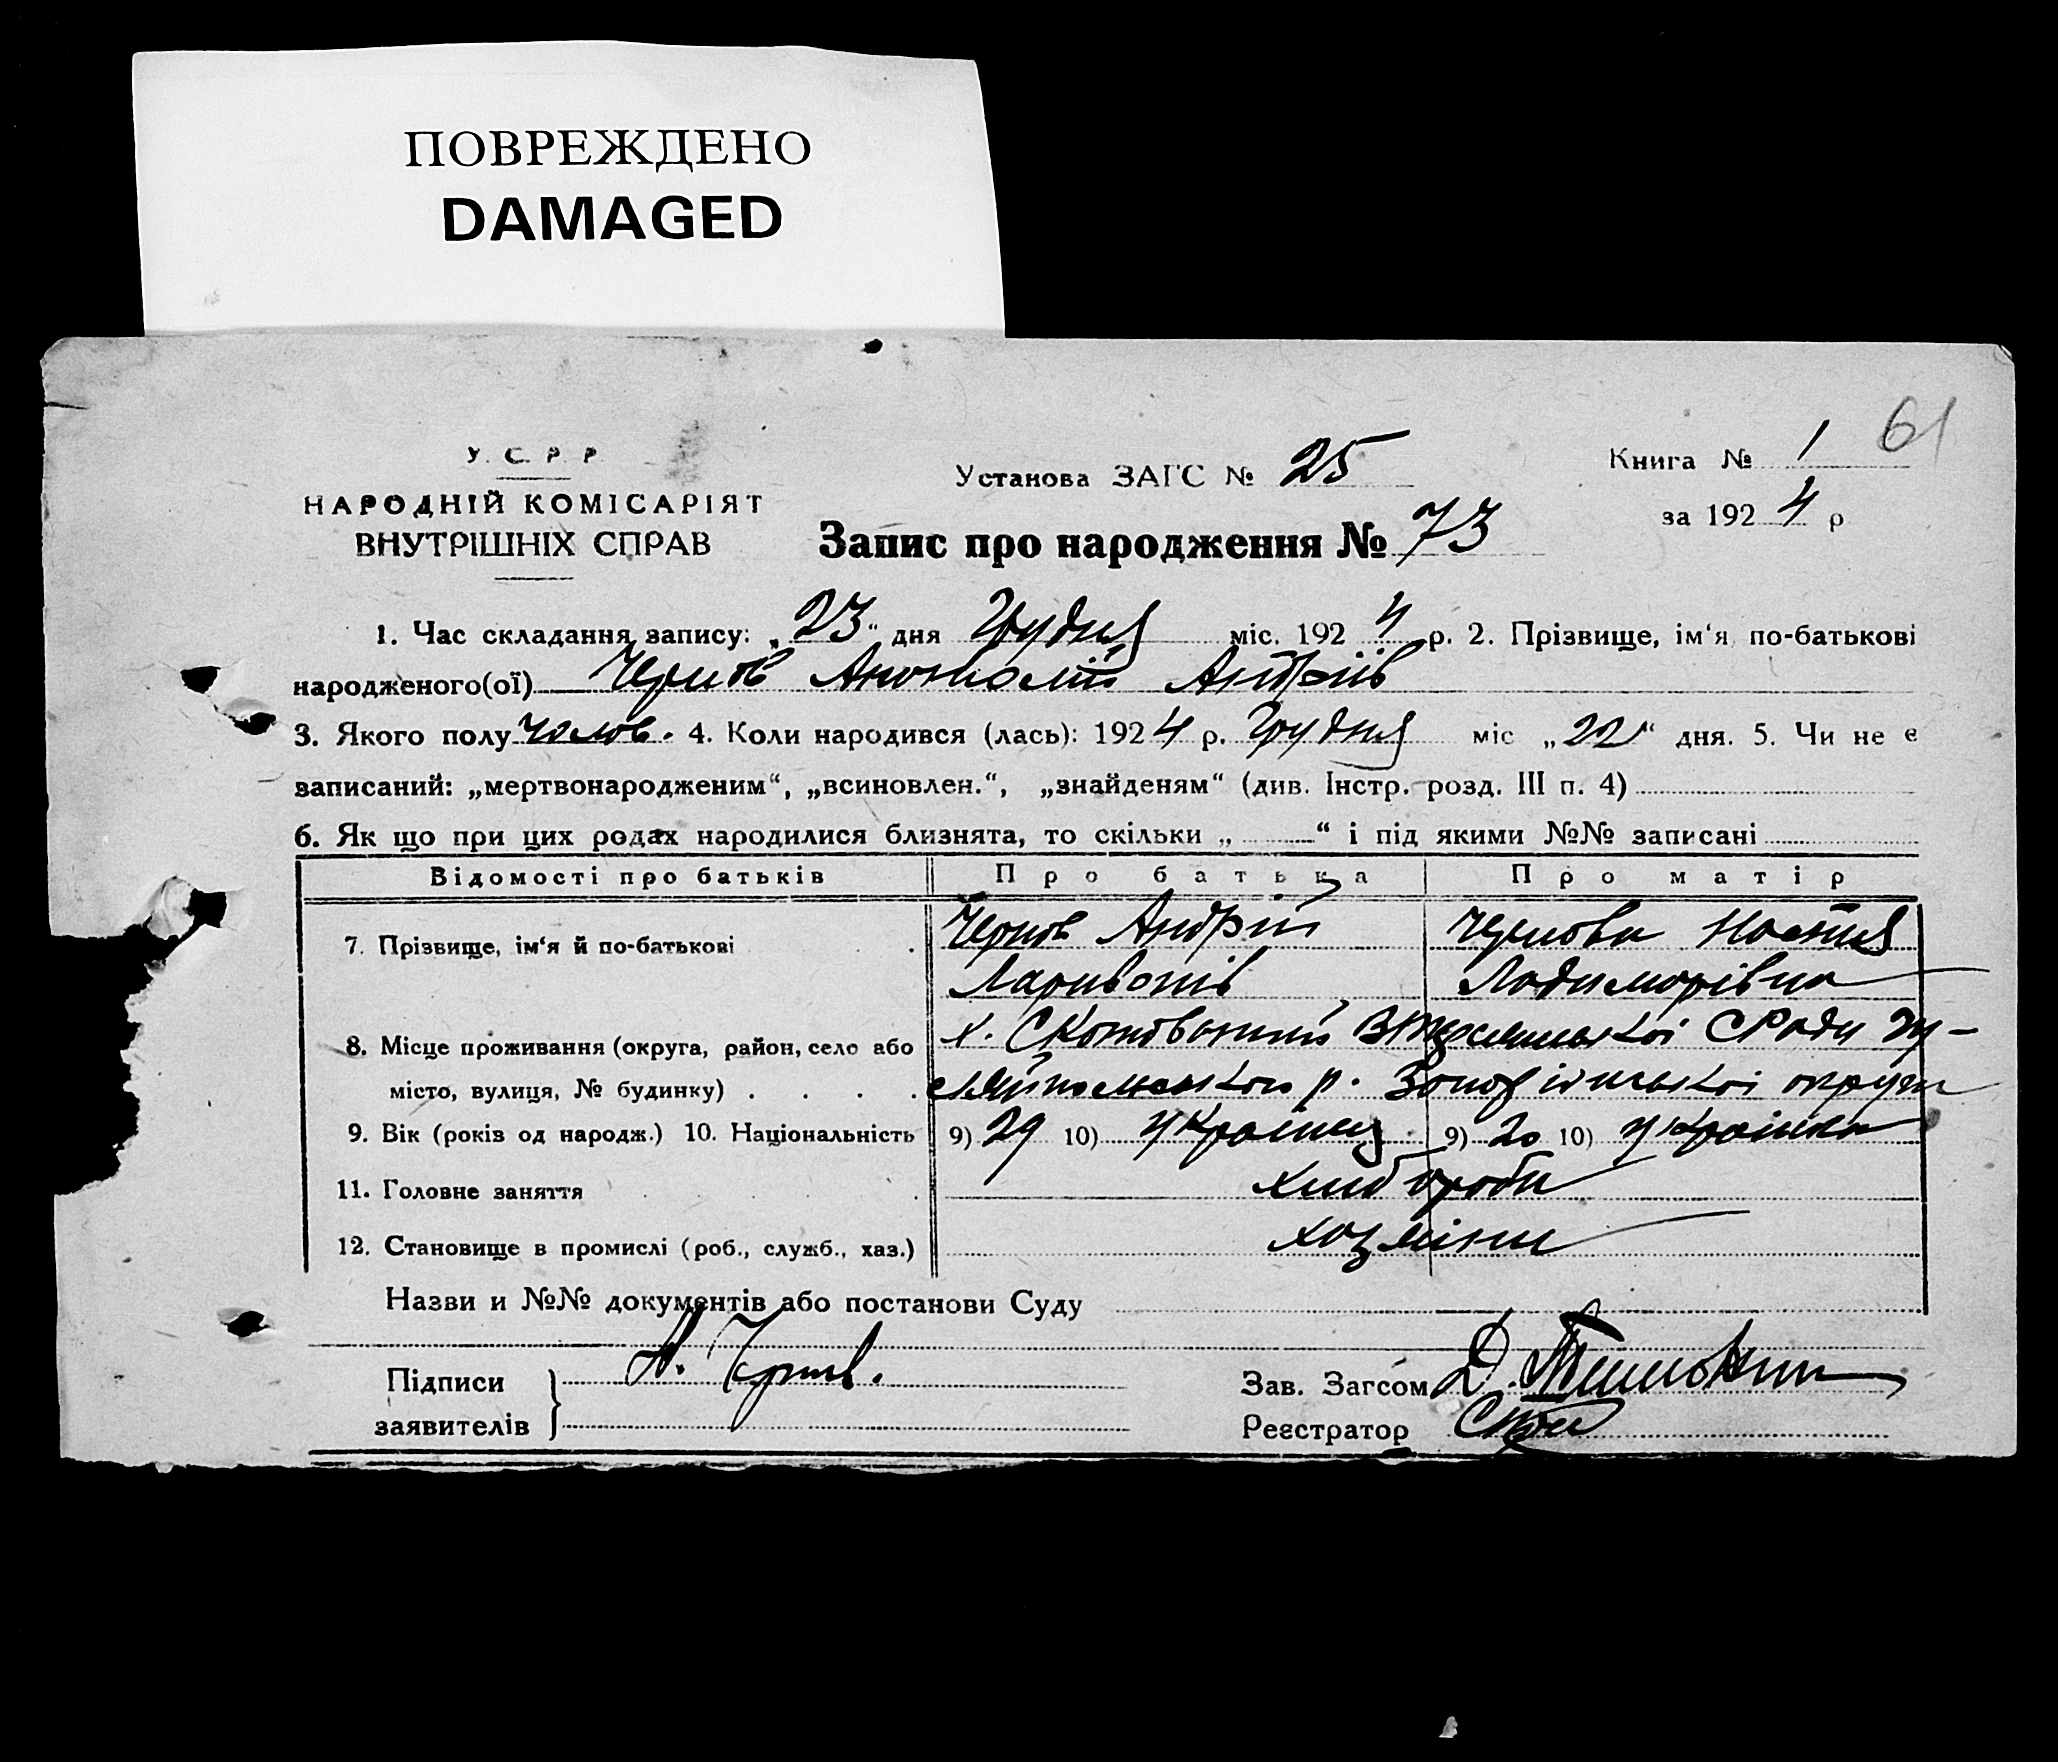 ПОВРЕЖДЕНО
DAMAGED
61
У. С. Р. Р.
НАРОДНІЙ КОМІСАРІЯТ
ВНУТРІШНІХ СПРАВ
Установа ЗАГС № 25
Книга № 1
за 1924 р
Запис про народження № 73
1. Час складання запису: „23“ дня Грудня міс. 1924 р. 2. Прізвище, ім‘я по-батькові
народженого(ої) Чернов Анатолій Андріїв
3. Якого полу чолов. 4. Коли народився (лась): 1924 р. Грудня міс „22“ дня. 5. Чи не є
записаний: „мертвонародженим“, „всиновлен.“, „знайденям“ (див. Інстр. розд. III п. 4)
6. Як що при цих родах народилися близнята, то скільки „ “ і під якими №№ записані
Відомості про батьків Про батька Про матір
7. Прізвище, ім‘я й по-батькові Чернов Андрій Чернова Настя
Ларивонів
8. Місце проживання (округа, район, село або х. Ради Гу-
місто, вулиця, № будинку) ляйпольського р. Запорізької округи
9. Вік (років од народж.) 10. Національність 9) 29 10) Українец 9) 20 10) Українка
11. Головне заняття хлібороби
12. Становище в промислі (роб., служб., хаз.) хозяіни
Назви и №№ документів або постанови Суду
Підписи А. Чернов.
заявителів
Зав. Загсом Д.
Реєстратор